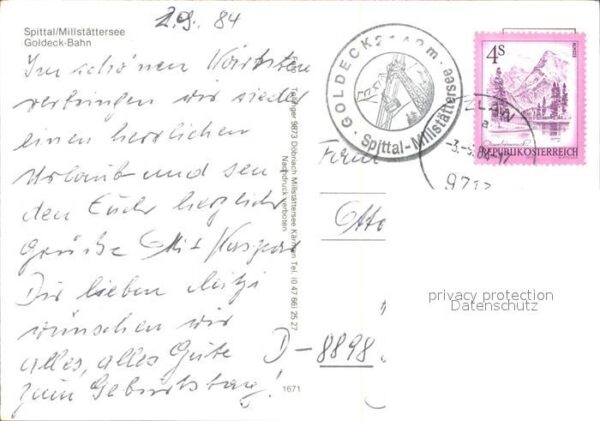 Spittal/Millstättersee
Goldeck-Bahn
2.9. 84
Im schönen Kärnten
verbringen wir wieder
einen herrlichen
Urlaub und sen
den Euch herzliche
Grüße Kaspar
Dir lieben Mitzi
wünschen wir
alles, alles Gute
zum Geburtstag!
9873 Döbriach Millstättersee Kärnten Tel. (0 47 66) 25 27
Nachdruck verboten
1671
GOLDECK
Spittal-Millstättersee
4S
REPUBLIK ÖSTERREICH
a
Otto
D-8898
privacy protection
Datenschutz